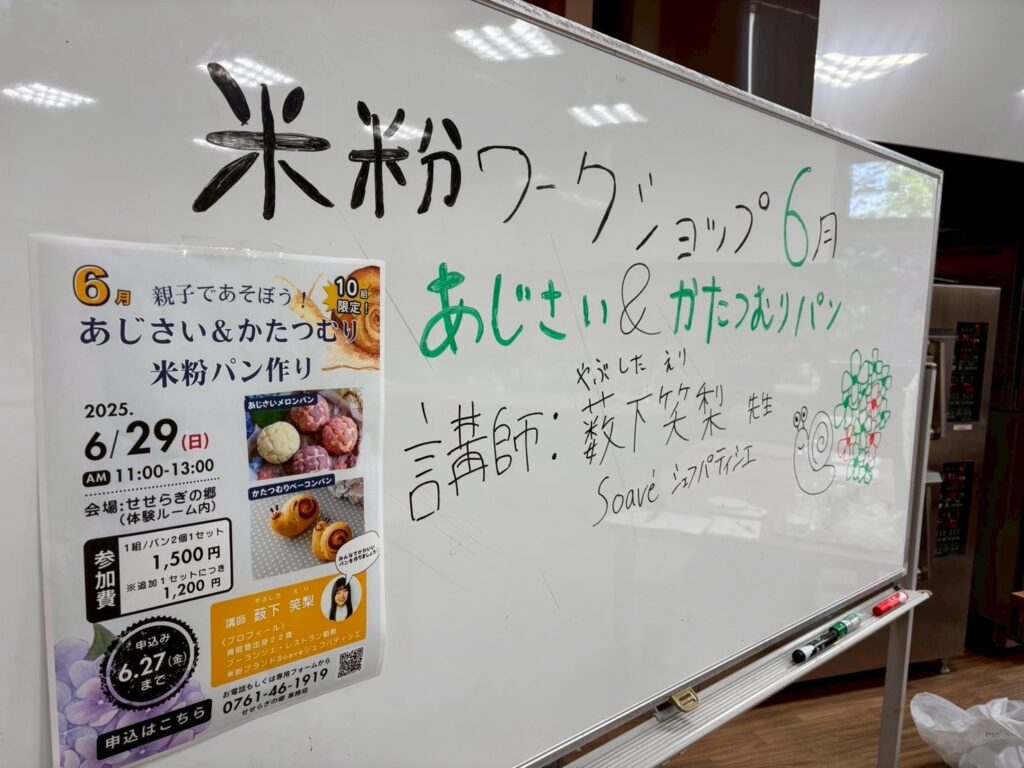 米粉ワークショップ 6月
あじさい&かたつむりパン
やぶした えり
講師:薮下笑梨 先生
Soavé シェフパティシエ
6月 親子であそぼう!
10組限定!
あじさい&かたつむり
米粉パン作り
2025.
6/29(日)
AM 11:00-13:00
会場:せせらぎの郷
(体験ルーム内)
参加費
1組/パン2個1セット
1,500円
※追加1セットにつき
1,200円
あじさいメロンパン
かたつむりベーコンパン
みんなでかわいい
パンを作りましょう
やぶした えり
講師 薮下 笑梨
〈プロフィール〉
ブーランジェ・レストラン勤務
米粉ブランドSoaveシェフパティシエ
申込み
6.27(金)
まで
申込はこちら
お電話もしくは専用フォームから
0761-46-1919
せせらぎの郷 事務局